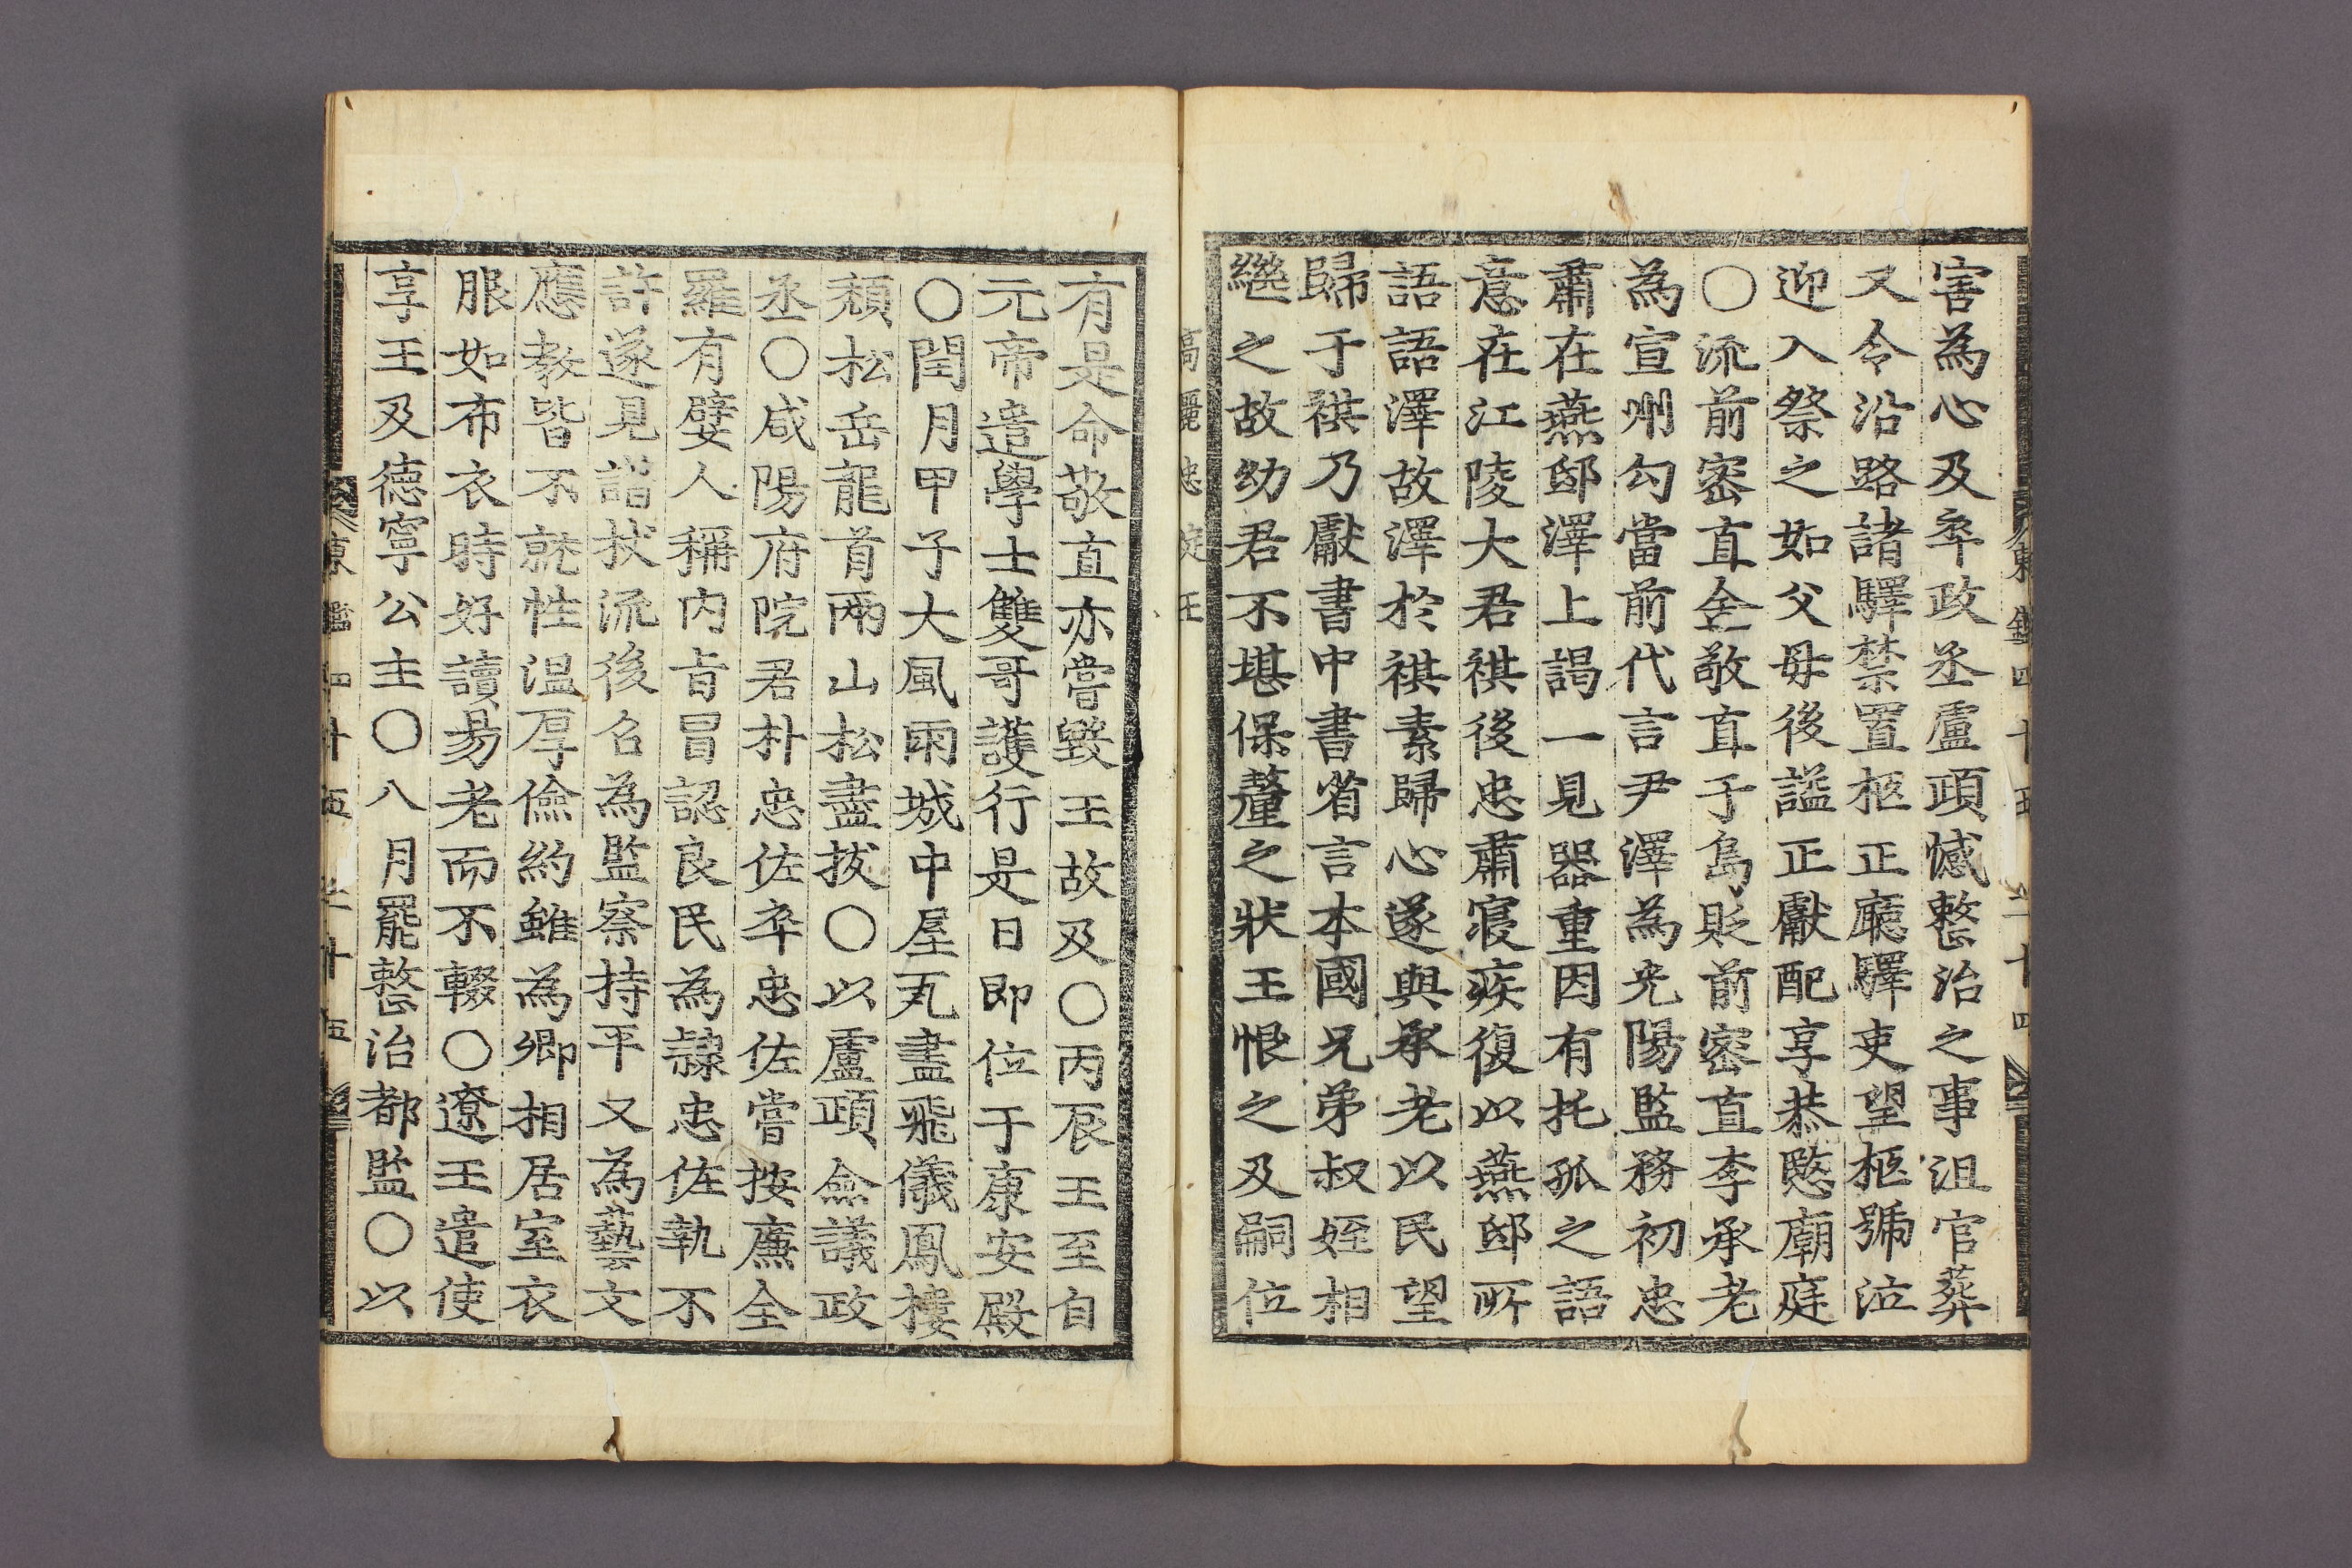 害為心及卒政丞盧頙憾整治之事沮官葬
又令沿路諸驛禁置柩正廳驛吏望柩號泣
迎入祭之如父母後謚正獻配享恭愍廟庭
○流前密直金敬直于島貶前密直李承老
為宣州勾當前代言尹澤為光陽監務初忠
肅在燕邸澤上謁一見器重因有托孤之語
意在江陵大君祺後忠肅寢疾復以燕邸所
語語澤故澤於祺素歸心遂與承老以民望
歸于祺乃獻書中書省言本國兄弟叔姪相
繼之故幼君不堪保釐之狀王恨之及嗣位
高麗忠定王
有是命敬直亦嘗毀王故及○丙辰王至自
元帝遣學士雙哥護行是日即位于康安殿
○閏月甲子大風雨城中屋瓦盡飛儀鳳樓
頹松岳龍首兩山松盡拔○以盧頙僉議政
丞○咸陽府院君朴忠佐卒忠佐嘗按廉全
羅有嬖人稱內旨冒認良民為隷忠佐執不
許遂見譖杖流後召為監察持平又為藝文
應教皆不就性溫厚儉約雖為卿相居室衣
服如布衣時好讀易老而不輟○遼王遣使
享王及德寧公主○八月罷整治都監○以
東鑑四十五 二十五